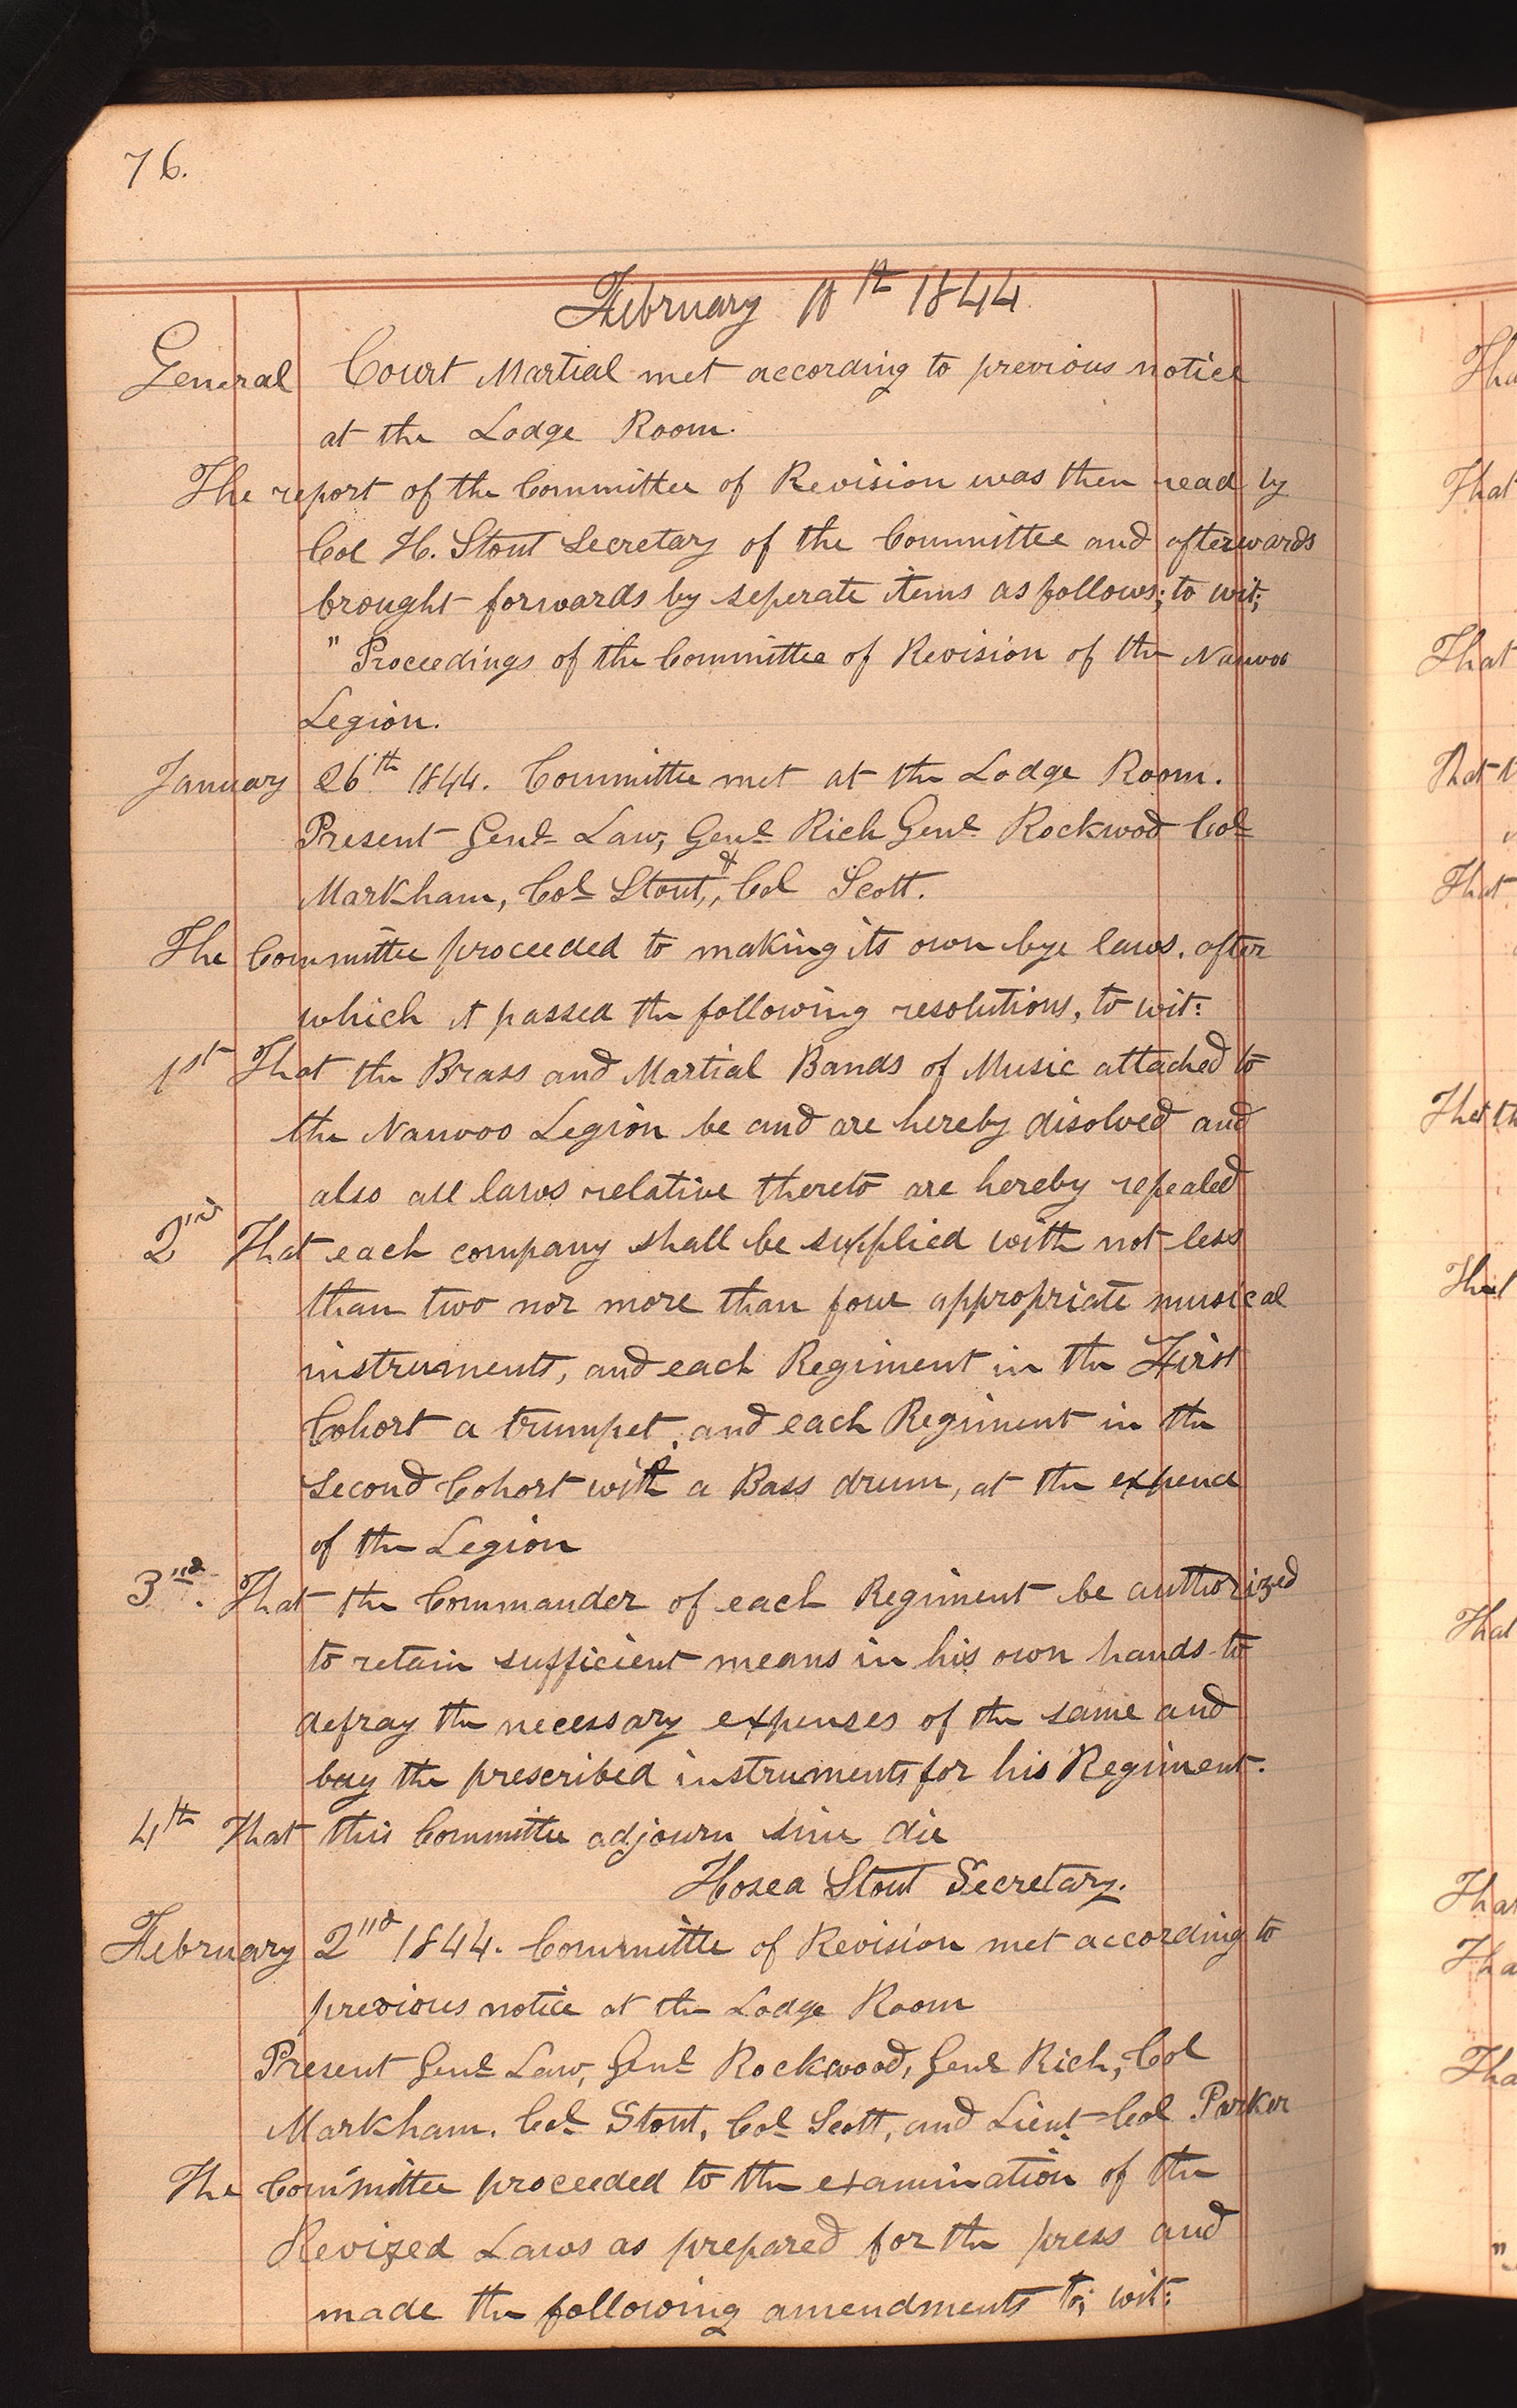 76.
February 10th 1844
General Court Martial met according to previous notice
at the Lodge Room.
The report of the Committee of Revision was then read by
Col H. Stout Secretary of the Committee and afterwards
brought forwards by seperate items as follows; to wit;
" Proceedings of the Committee of Revision of the Nauvoo
Legion.
January 26th 1844. Committee met at the Lodge Room.
Present Genl Law, Genl Rich Genl Rockwod Col
Markham, Col Stout, & Col Scott.
The Committee proceeded to making its own bye laws. after
which it passed the following resolutions, to wit:
1st That the Brass and Martial Bands of Music attached to
the Nauvoo Legion be and are hereby disolved and
also all laws relative thereto are hereby repealed
2nd That each company shall be supplied with not less
than two nor more than four appropriate musical
instruments, and each Regiment in the First
Cohort a trumpet, and each Regiment in the
Second Cohort with a Bass drum, at the expence
of the Legion
3nd. That the Commander of each Regiment be authorized
to retain sufficient means in his own hands to
defray the necessary expenses of the same and
buy the prescribed instruments for his Regiment.
4th That this Committee adjourn sine die
Hosea Stout Secretary.
February 2nd 1844. Committee of Revision met according to
previous notice at the Lodge Room
Present Genl Law, Genl Rockwood, Genl Rich, Col
Markham. Col Stout, Col Scott, and Lieut Col Parker
The Committee proceeded to the examination of the
Revized Laws as prepared for the press and
made the following amendments to; wit:
That
That
That
That
That
That